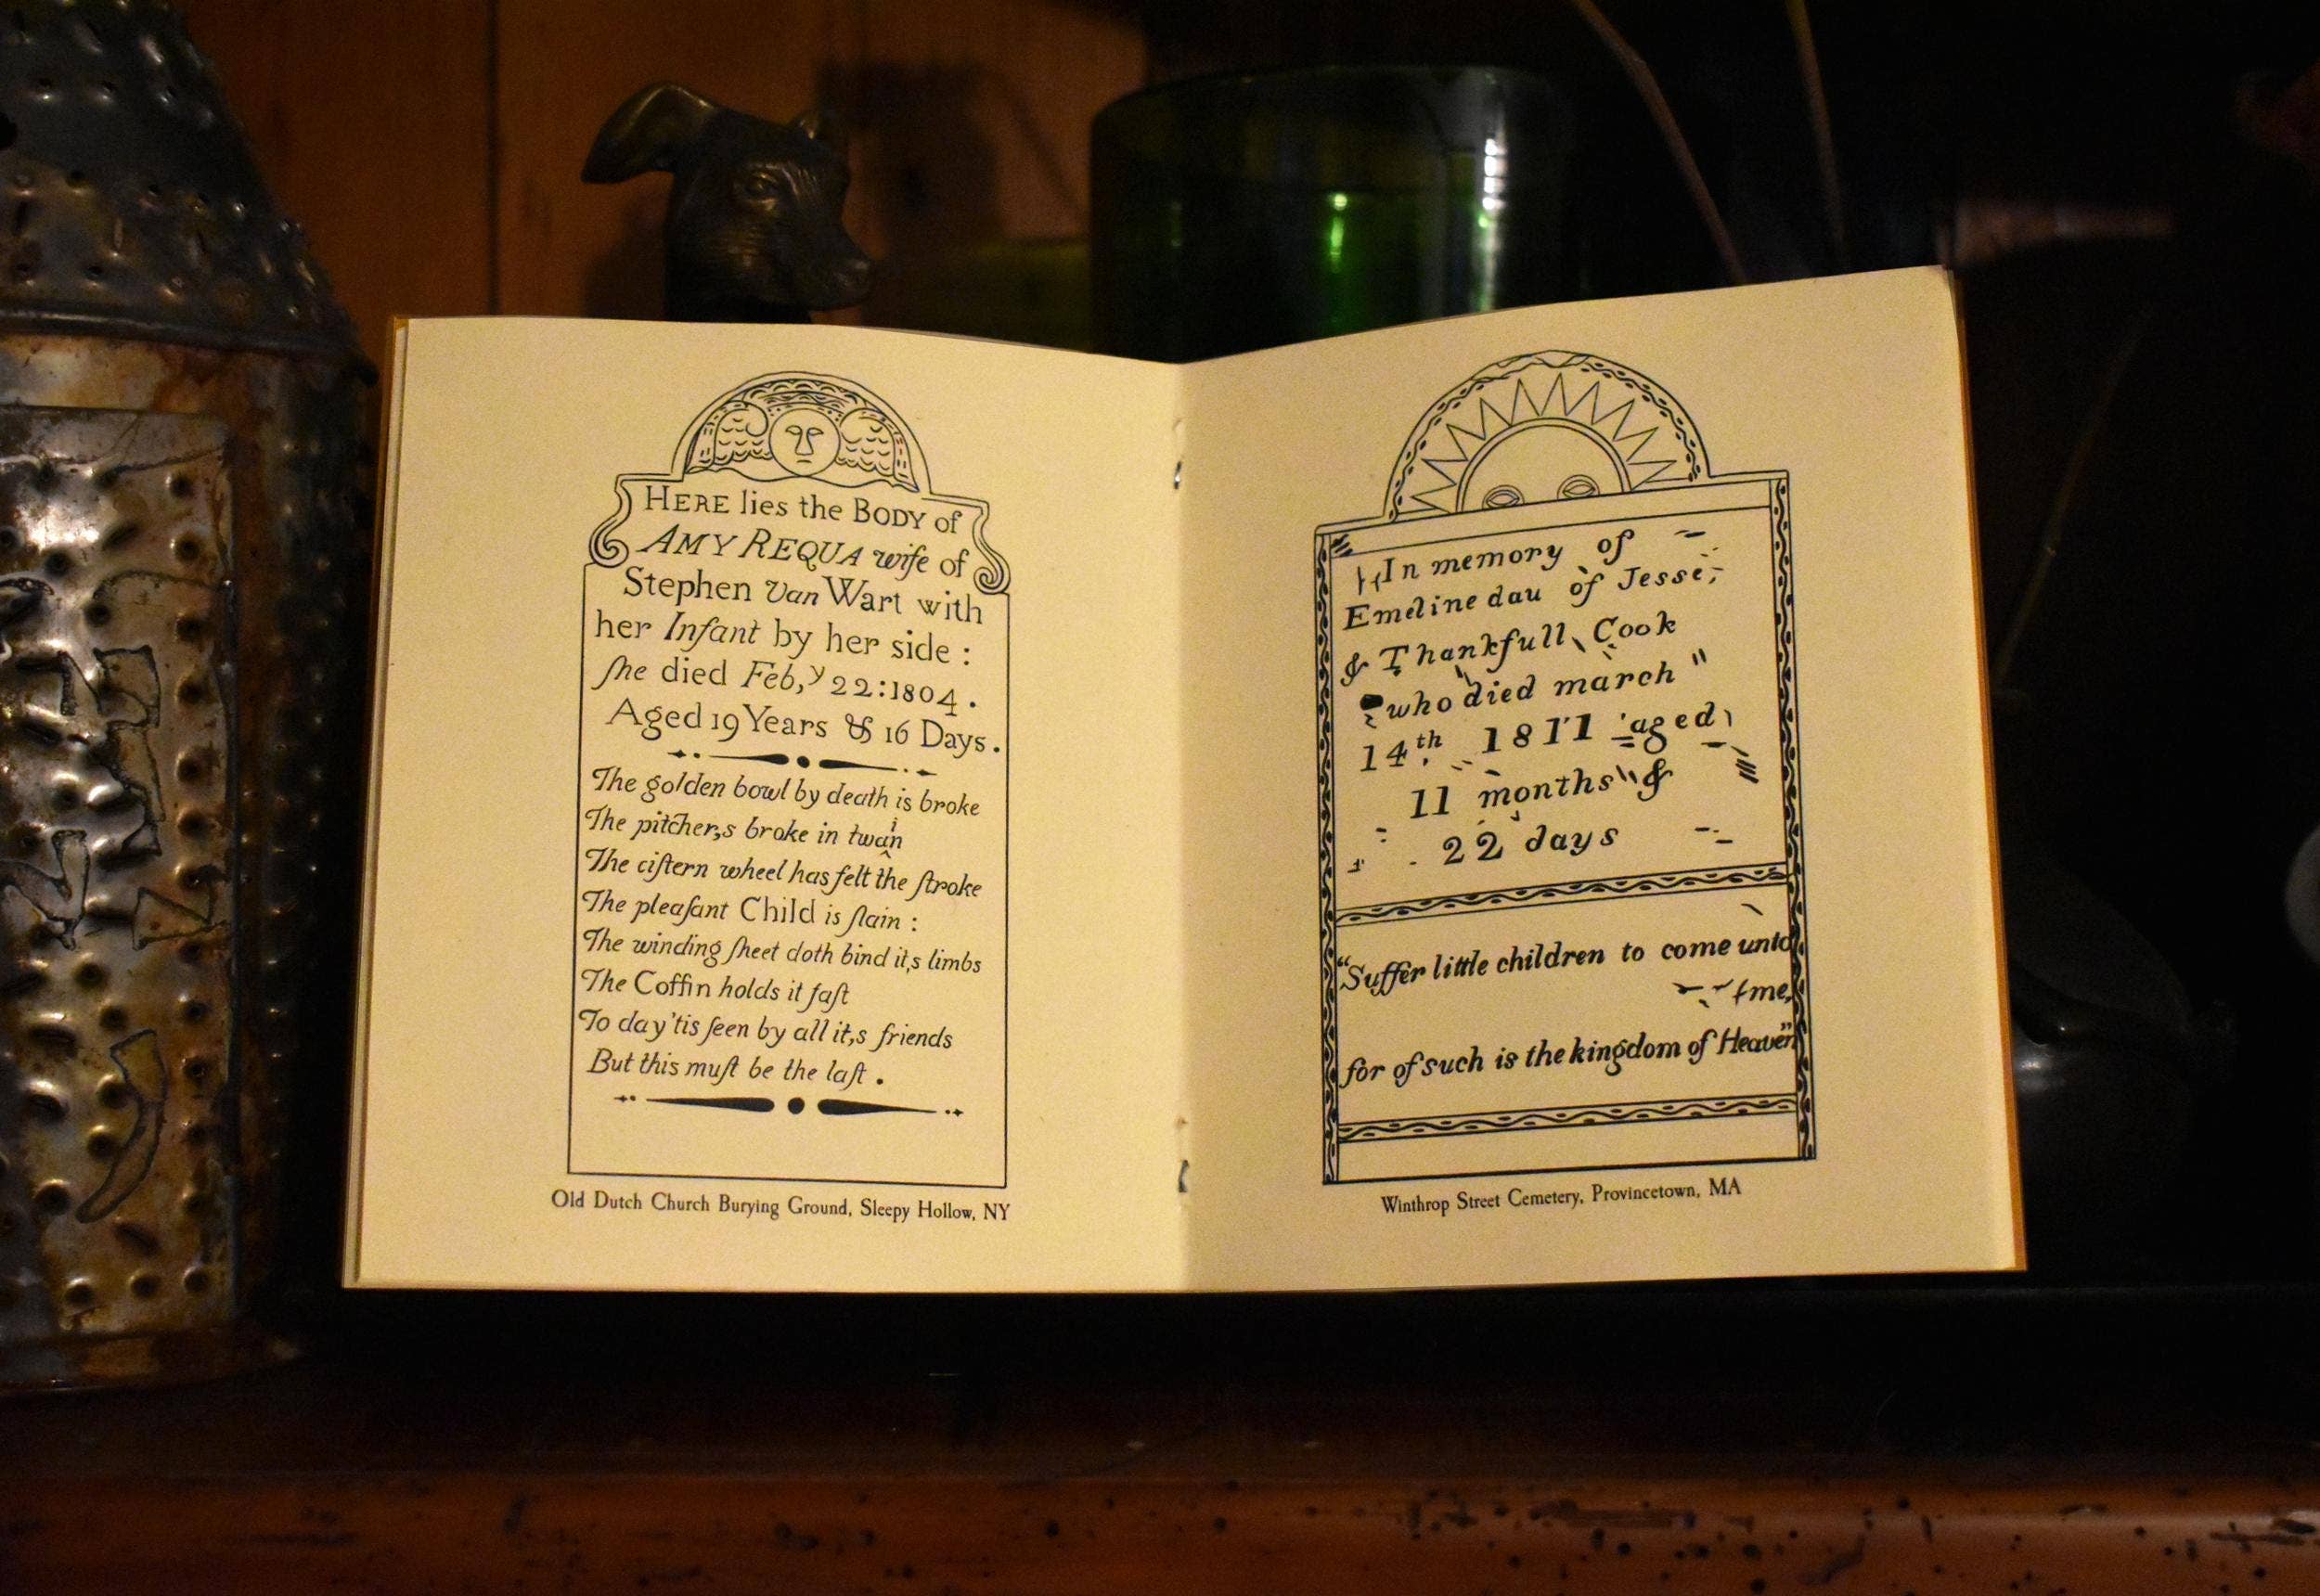 HERE lies the BODY of
AMY REQUA wife of
Stephen Van Wart with
her Infant by her side :
ſhe died Feb,ʸ 22:1804.
Aged 19 Years & 16 Days.
The golden bowl by death is broke
The pitcher,s broke in twain
The ciſtern wheel has felt the ſtroke
The pleaſant Child is ſlain :
The winding ſheet doth bind it,s limbs
The Coffin holds it faſt
To day 'tis ſeen by all it,s friends
But this muſt be the laſt .
Old Dutch Church Burying Ground, Sleepy Hollow, NY
In memory of
Emeline dau of Jesse
& Thankfull Cook
who died march
14th 1811 aged
11 months &
22 days
"Suffer little children to come unto
me,
for of such is the kingdom of Heaven"
Winthrop Street Cemetery, Provincetown, MA